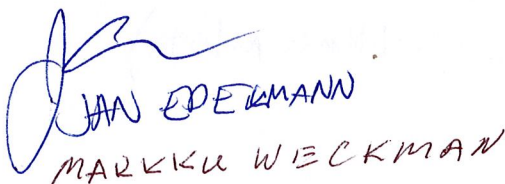 JAN EDELMANN
MARKKU WECKMAN